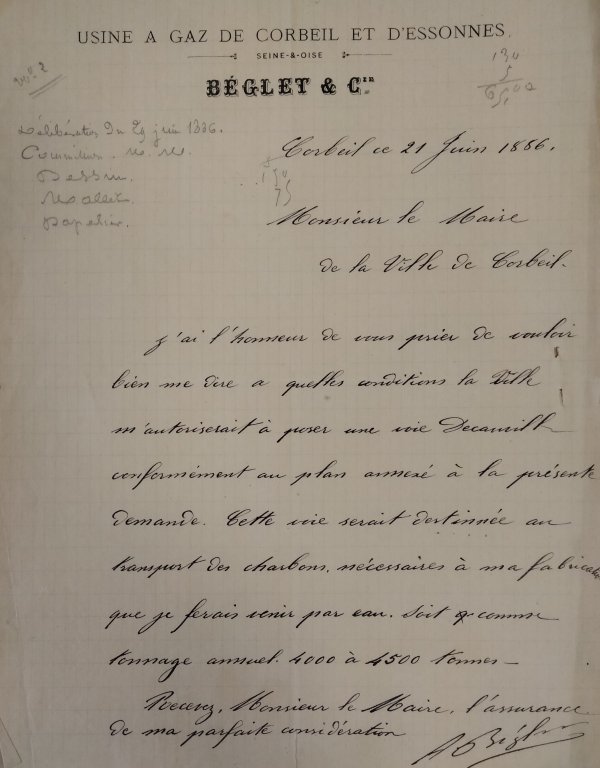 USINE A GAZ DE CORBEIL ET D'ESSONNES
SEINE-&-OISE
BÉGLET & Cie
150
5
Délibération du 29 juin 1886.
Commission. M. M.
Corbeil ce 21 Juin 1886.
150
75
Monsieur le Maire
de la Ville de Corbeil.
j'ai l'honneur de vous prier de vouloir
bien me dire a quelles conditions la Ville
m'autoriserait à poser une voie Decauville
conformément au plan annexé à la présente
demande. Cette voie serait destinnée au
transport des charbons, nécessaires à ma fabrication
que je ferais venir par eau. Soit comme
tonnage annuel. 4000 à 4500 tonnes –
Recevez, Monsieur le Maire, l'assurance
de ma parfaite considération
Béglet